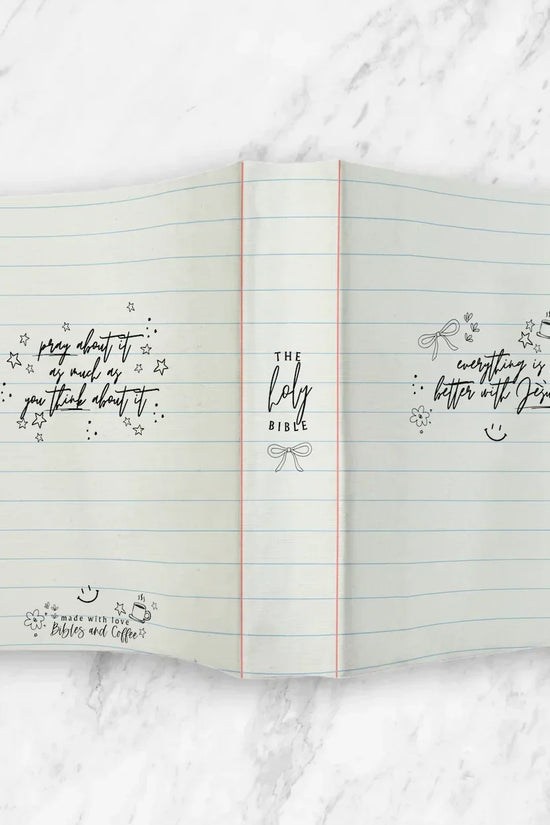 pray about it
as much as
you think about it
made with love
Bibles and Coffee
THE
holy
BIBLE
everything is
better with Jesu